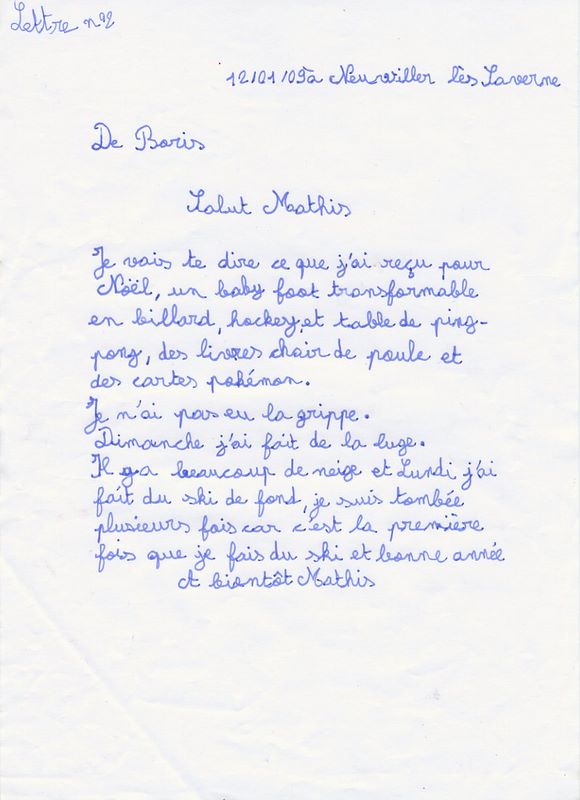 Lettre n°2
12/01/09 à Neuwiller lès Saverne
De Boris
Salut Mathis
Je vais te dire ce que j'ai reçu pour
Nöël, un baby foot transformable
en billard, hockey, et table de ping-
pong, des livres chair de poule et
des cartes pokémon.
Je n'ai pas eu la grippe.
Dimanche j'ai fait de la luge.
Il y a beaucoup de neige et Lundi j'ai
fait du ski de fond, je suis tombée
plusieurs fois car c'est la première
fois que je fais du ski et bonne année
A biantôt Mathis